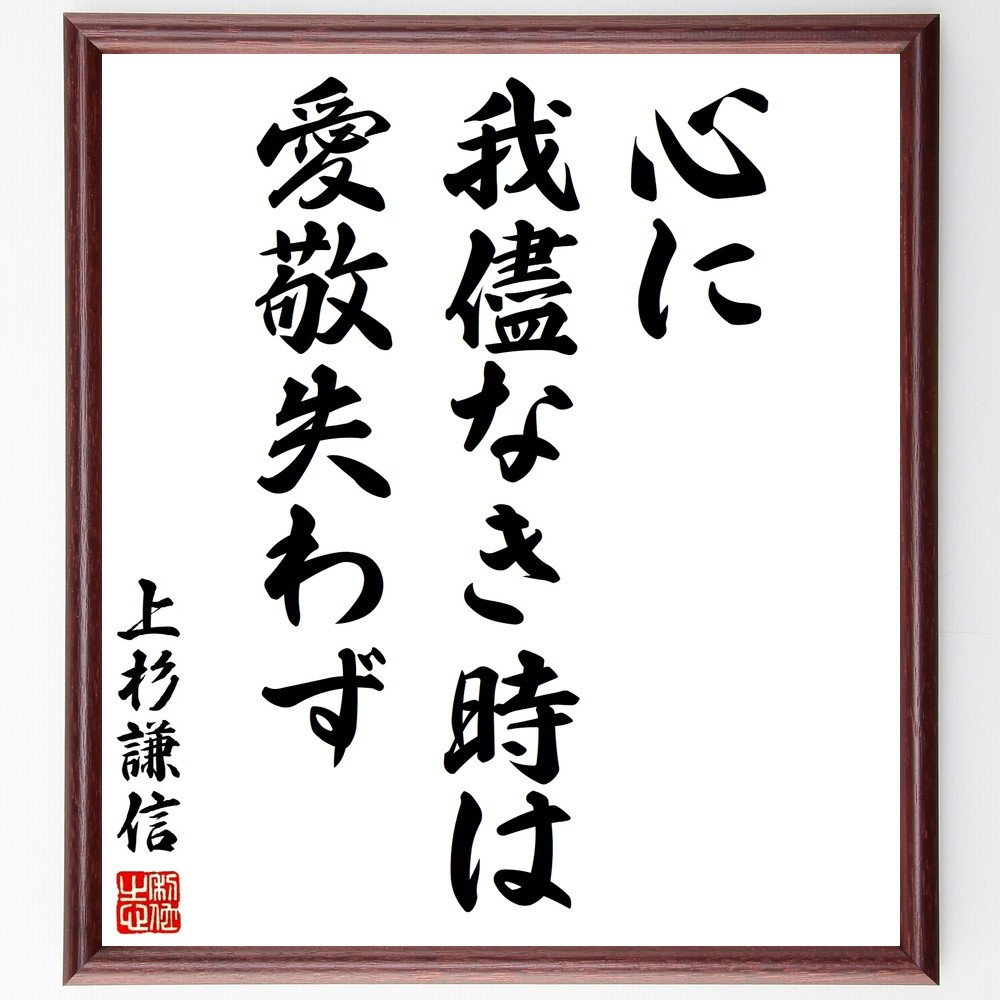 心に
我儘なき時は
愛敬失わず
上杉謙信